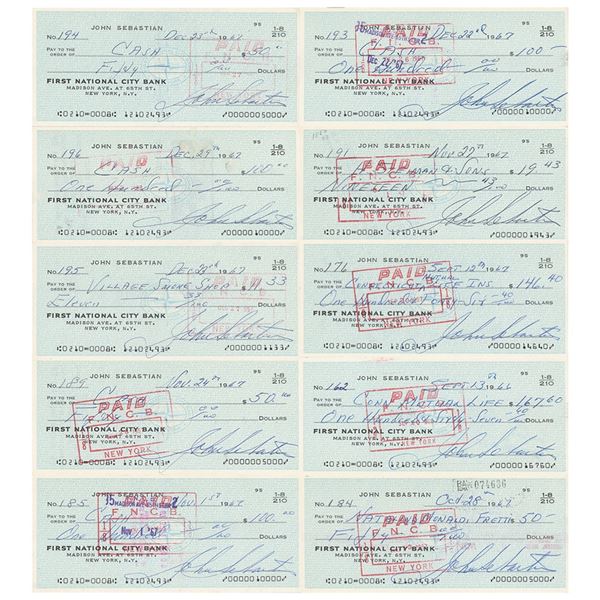 JOHN SEBASTIAN 95 1-8 210
No. 194 Dec 23rd 1967
PAY TO THE ORDER OF CASH $ 50.00
Fifty DOLLARS
PAID
FIRST NATIONAL CITY BANK
MADISON AVE. AT 65TH ST.
NEW YORK, N.Y.
John Sebastian
⑆0210⑈0008⑆ 12102493⑈ ⑈0000005000⑈
JOHN SEBASTIAN 95 1-8 210
No. 193 Dec 22nd 1967
PAY TO THE ORDER OF CASH $ 100
One Hundred DOLLARS
PAID
F. N. C. B.
FIRST NATIONAL CITY BANK
MADISON AVE. AT 65TH ST.
NEW YORK, N.Y.
John Sebastian
⑆0210⑈0008⑆ 12102493⑈ ⑈0000010000⑈
JOHN SEBASTIAN 95 1-8 210
No. 196 Dec 29th 1967
PAY TO THE ORDER OF CASH $ 100.00
One Hundred DOLLARS
PAID
FIRST NATIONAL CITY BANK
MADISON AVE. AT 65TH ST.
NEW YORK, N.Y.
John Sebastian
⑆0210⑈0008⑆ 12102493⑈ ⑈0000010000⑈
JOHN SEBASTIAN 95 1-8 210
No. 191 Nov 27th 1967
PAY TO THE ORDER OF & Sons $ 19.43
Nineteen 43 DOLLARS
PAID
F. N. C. B.
NEW YORK
FIRST NATIONAL CITY BANK
MADISON AVE. AT 65TH ST.
NEW YORK, N.Y.
John Sebastian
⑆0210⑈0008⑆ 12102493⑈ ⑈0000001943⑈
JOHN SEBASTIAN 95 1-8 210
No. 195 Dec 23rd 1967
PAY TO THE ORDER OF Village Smoke Shop $ 11.33
Eleven 33 DOLLARS
PAID
FIRST NATIONAL CITY BANK
MADISON AVE. AT 65TH ST.
NEW YORK, N.Y.
John Sebastian
⑆0210⑈0008⑆ 12102493⑈ ⑈0000001133⑈
JOHN SEBASTIAN 95 1-8 210
No. 176 Sept 12th 1967
PAY TO THE ORDER OF Connecticut Mutual Life Ins. $ 146.40
One Hundred Forty Six 40 DOLLARS
PAID
NEW YORK
FIRST NATIONAL CITY BANK
MADISON AVE. AT 65TH ST.
NEW YORK, N.Y.
John Sebastian
⑆0210⑈0008⑆ 12102493⑈ ⑈0000014640⑈
JOHN SEBASTIAN 95 1-8 210
No. 189 Nov. 24th 1967
PAY TO THE ORDER OF $ 50.00
DOLLARS
PAID
F. N. C. B.
NEW YORK
FIRST NATIONAL CITY BANK
MADISON AVE. AT 65TH ST.
NEW YORK, N.Y.
John Sebastian
⑆0210⑈0008⑆ 12102493⑈ ⑈0000005000⑈
JOHN SEBASTIAN 95 1-8 210
No. 162 Sept. 13 1966
PAY TO THE ORDER OF Conn. Mutual Life $ 167.60
One Hundred Sixty Seven DOLLARS
PAID
NEW YORK
FIRST NATIONAL CITY BANK
MADISON AVE. AT 65TH ST.
NEW YORK, N.Y.
John Sebastian
⑆0210⑈0008⑆ 12102493⑈ ⑈0000016760⑈
JOHN SEBASTIAN 95 1-8 210
No. 185 Nov. 1st 1967
PAY TO THE ORDER OF CASH $ 100.00
One DOLLARS
F. N. C. B.
NEW YORK
FIRST NATIONAL CITY BANK
MADISON AVE. AT 65TH ST.
NEW YORK, N.Y.
John Sebastian
⑆0210⑈0008⑆ 12102493⑈ ⑈0000010000⑈
JOHN SEBASTIAN 1-8 210
No. 184 Oct 28th 1967
PAY TO THE ORDER OF $ 50
Fifty DOLLARS
PAID
F. N. C. B.
NEW YORK
FIRST NATIONAL CITY BANK
MADISON AVE. AT 65TH ST.
NEW YORK, N.Y.
John Sebastian
⑆0210⑈0008⑆ 12102493⑈ ⑈0000005000⑈